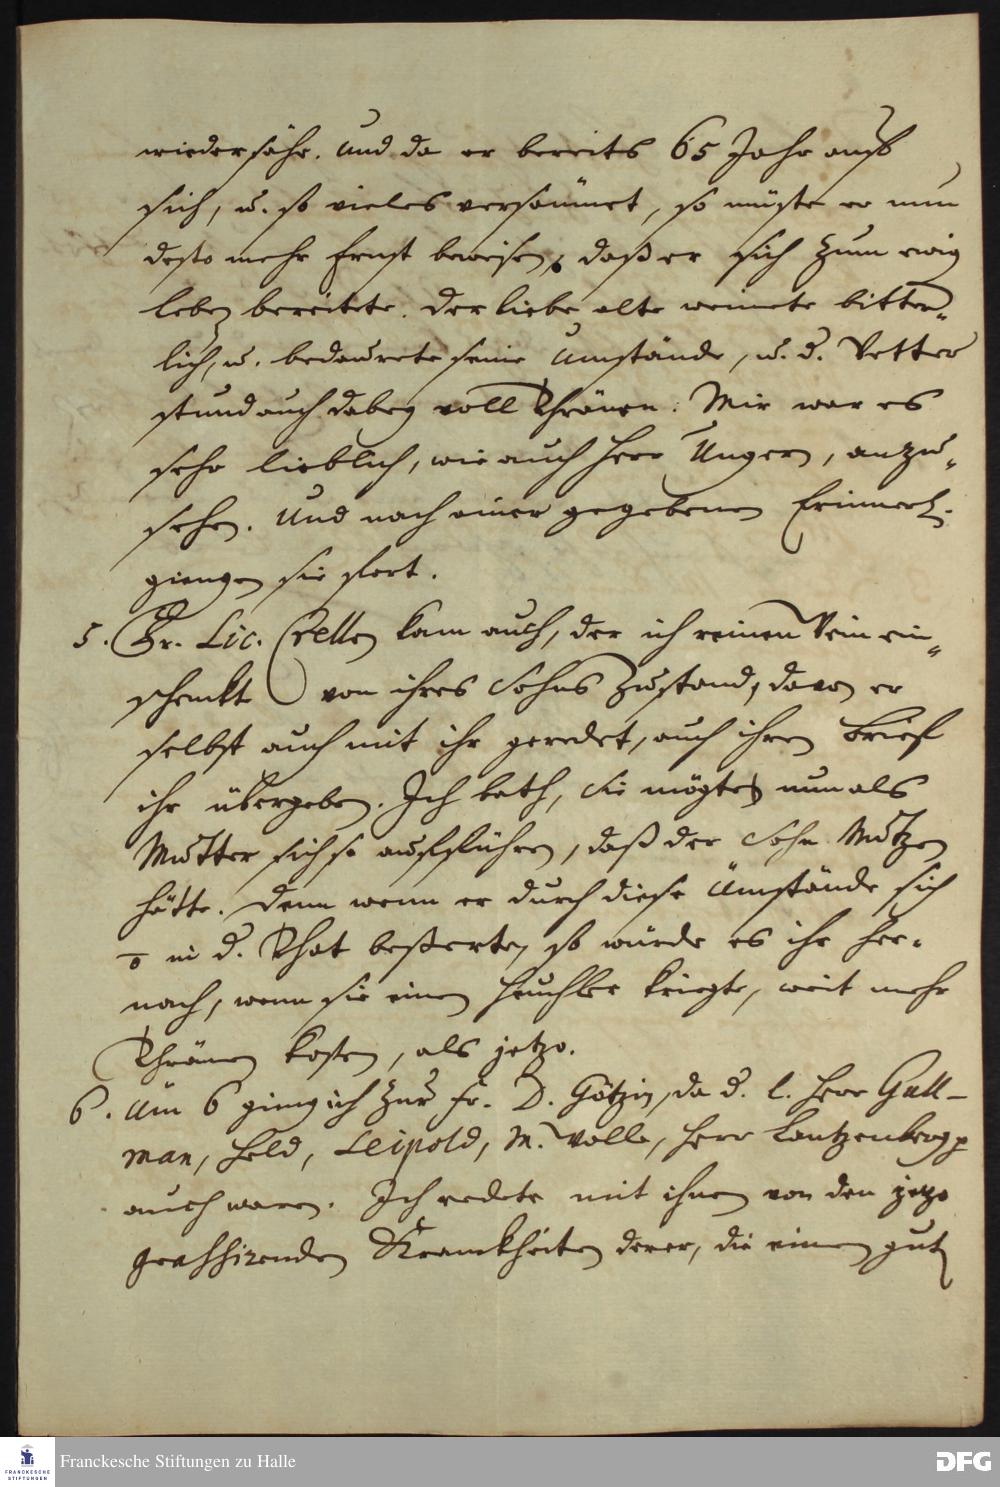 wiederfähr. Und da er bereits 65 Jahr auf
sich, u. so vieles versäumet, so müste er nun
desto mehr Ernst beweisen, daß er sich zum ewig
leben bereitete. Der liebe alte weinete bitter-
lich, u. bedaurete seine Umstände, u. d. Vetter
stund auch dabey voll Thränen. Mir war es
sehr lieblich, wie auch Herr Ungern, anzu-
sehen. Und nach einer gegebenen Erinner.
giengen sie fort.
5. Fr. Lic. Crellen kam auch, der ich reinen Wein ein-
schenckte von ihres Sohns Zustand, davon er
selbst auch mit ihr geredet, auch ihren Brief
ihr übergeben. Ich bath, sie mögte nun als
Mutter sich so aufführen, daß der Sohn Nutzen
hätte. Denn wenn er durch diese Umstände sich
in d. That beßerte, so würde es ihr her-
nach, wenn sie einen Heuchler kriegte, weit mehr
Thränen kosten, als jetzo.
6. Um 6 gieng ich zur Fr. D. Götzin, da d. l. Herr Gall-
man, Held, Leipold, M. Volle, Herr Lantzenberg
auch waren. Ich redete mit ihnen von den jetzo
grasshirenden Kranckheiten derer, die einen gut
Franckesche Stiftungen zu Halle
DFG
FRANCKESCHE
STIFTUNGEN